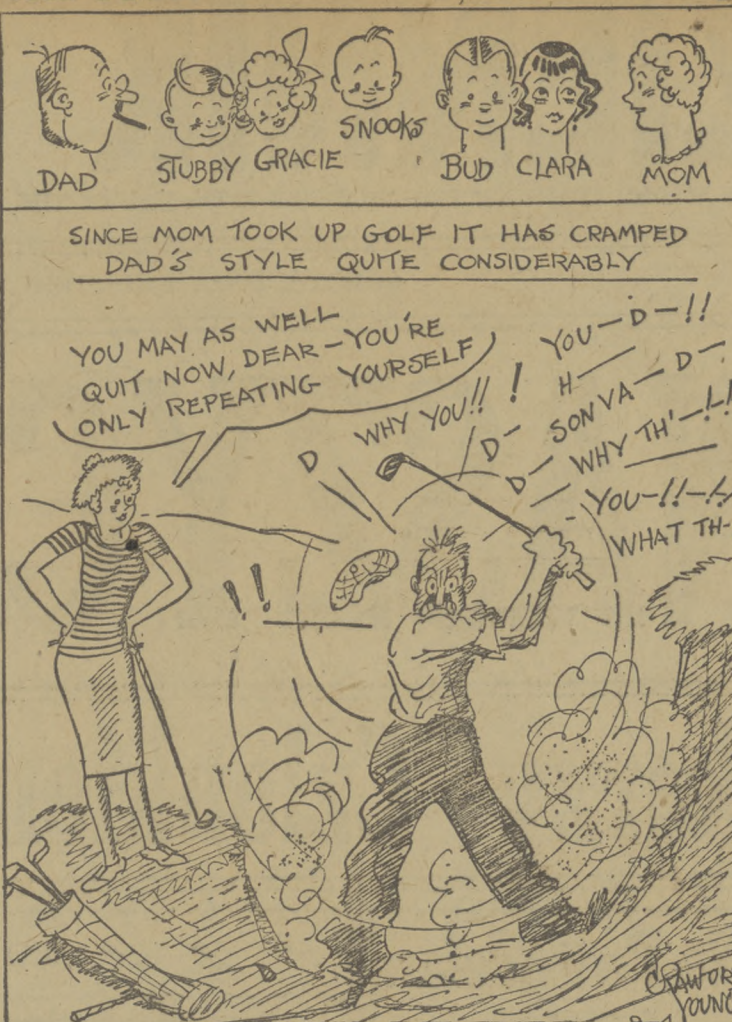 DAD
STUBBY
GRACIE
SNOOKS
BUD
CLARA
MOM
SINCE MOM TOOK UP GOLF IT HAS CRAMPED
DAD'S STYLE QUITE CONSIDERABLY
YOU MAY AS WELL
QUIT NOW, DEAR—YOU'RE
ONLY REPEATING YOURSELF
D
WHY YOU!! !
D-
D-
YOU—D—!!
H—
SONVA—D—
WHY TH'—!-!
YOU-!!-!
WHAT TH-
!!
CRAWFOR
YOUNG